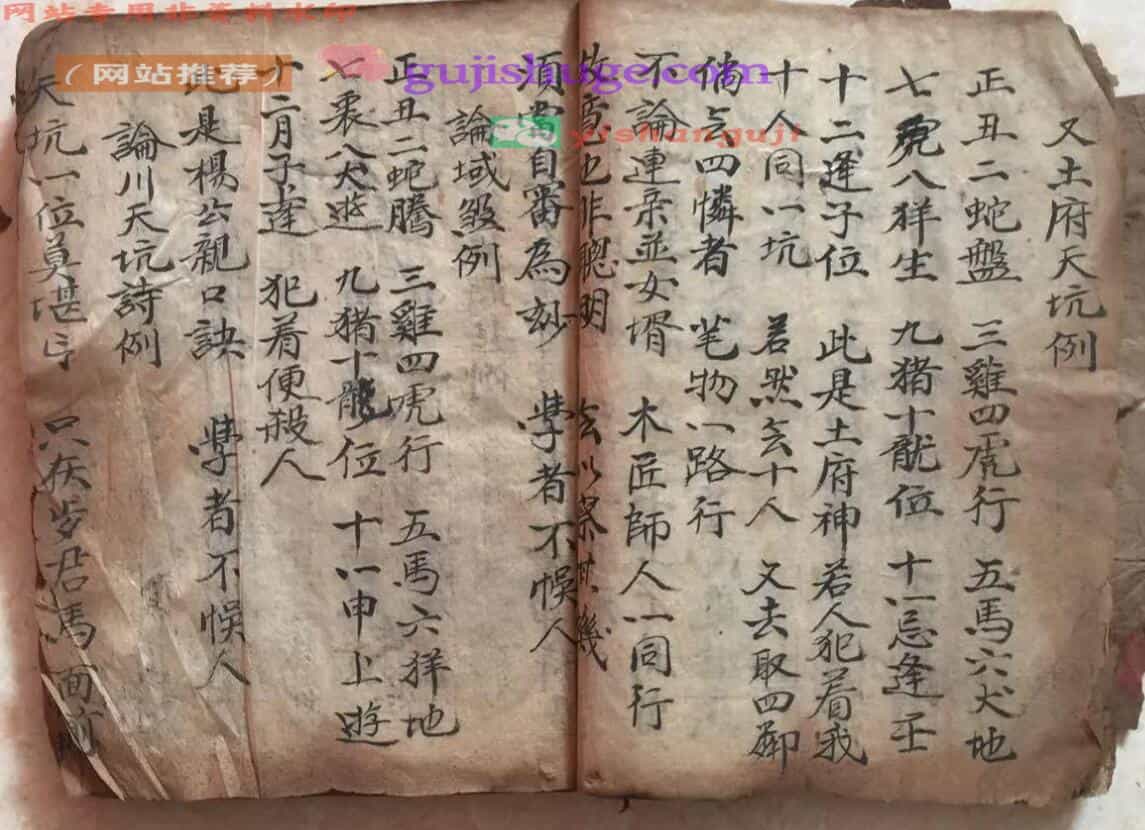 网站专用非资料水印
（网站推荐）
gujishuge.com
yishanguji
又土府天坑例
正丑二蛇盤 三雞四虎行 五馬六犬地
七兎八羊生 九猪十龍位 十一忌逢壬
十二逢子位 此是土府神 若人犯着我
十人同一坑 若然去十人 又去取四鄰
倘去四憐者 笔物一路行
不論連亲並女壻 木匠師人一同行
也非聰明
須當自審為 學者不悞人
論域煞例
正丑二蛇騰 三雞四虎行 五馬六羊地
七裹八犬遊 九猪十龍位 十一申上遊
十二月子逢 犯着便殺人
此是楊公親口訣 學者不悞人
論川天坑詩例
天坑一位莫堪 只在 君馬面前